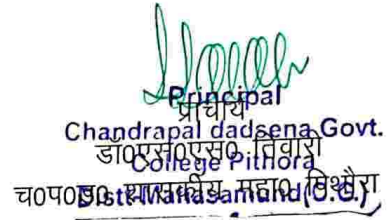 Principal
प्राचार्य
Chandrapal dadsena Govt.
डॉ०एस०एस० तिवारी
College Pithora
च०प०ड० शासकीय महा० पिथौरा
Distt-Mahasamund (C.G.)